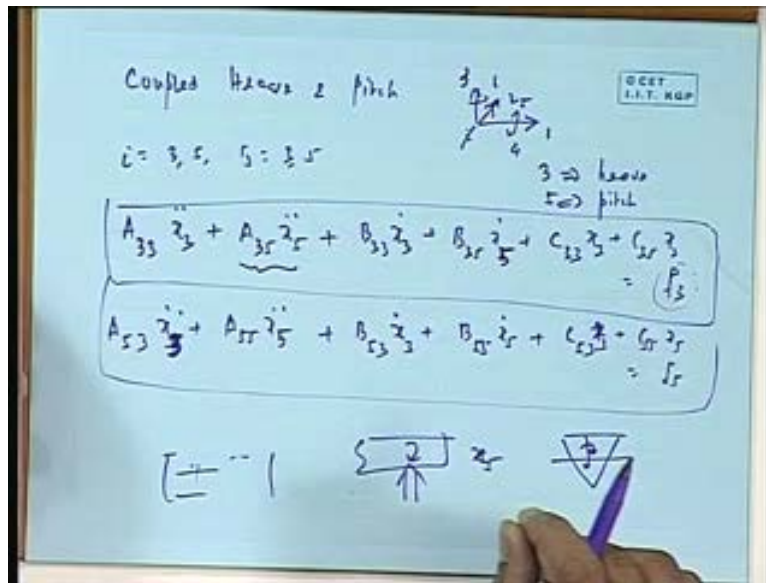 Coupled Heave & pitch
© CET
I.I.T. KGP
3 1 25
1
4
i = 3, 5, j = 3, 5
3 => heave
5 => pitch
A₃₃ ẍ₃ + A₃₅ ẍ₅ + B₃₃ ẋ₃ + B₃₅ ẋ₅ + C₃₃ x₃ + C₃₅ x₅
= f₃
A₅₃ ẍ₃ + A₅₅ ẍ₅ + B₅₃ ẋ₃ + B₅₅ ẋ₅ + C₅₃ x₃ + C₅₅ x₅
= f₅
x₅